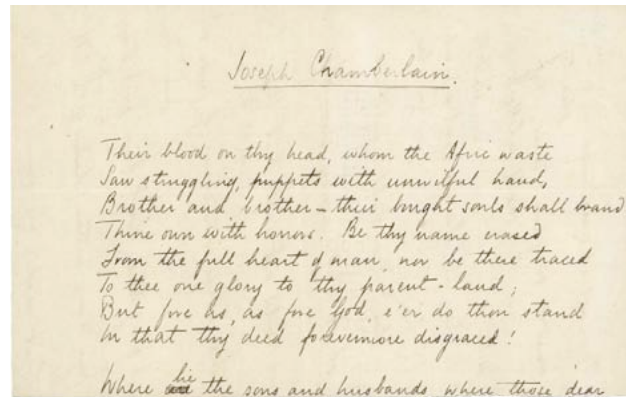 Joseph Chamberlain.
Their blood on thy head, whom the Afric waste
Saw struggling, puppets with unwilful hand,
Brother and brother – their bought souls shall brand
Thine own with horror. Be thy name erased
From the full heart of man, nor be there traced
To thee one glory to thy parent-land;
But fore us, as fore God, e'er do thou stand
In that thy deed forevermore disgraced!
Where lie the sons and husbands, where those dear